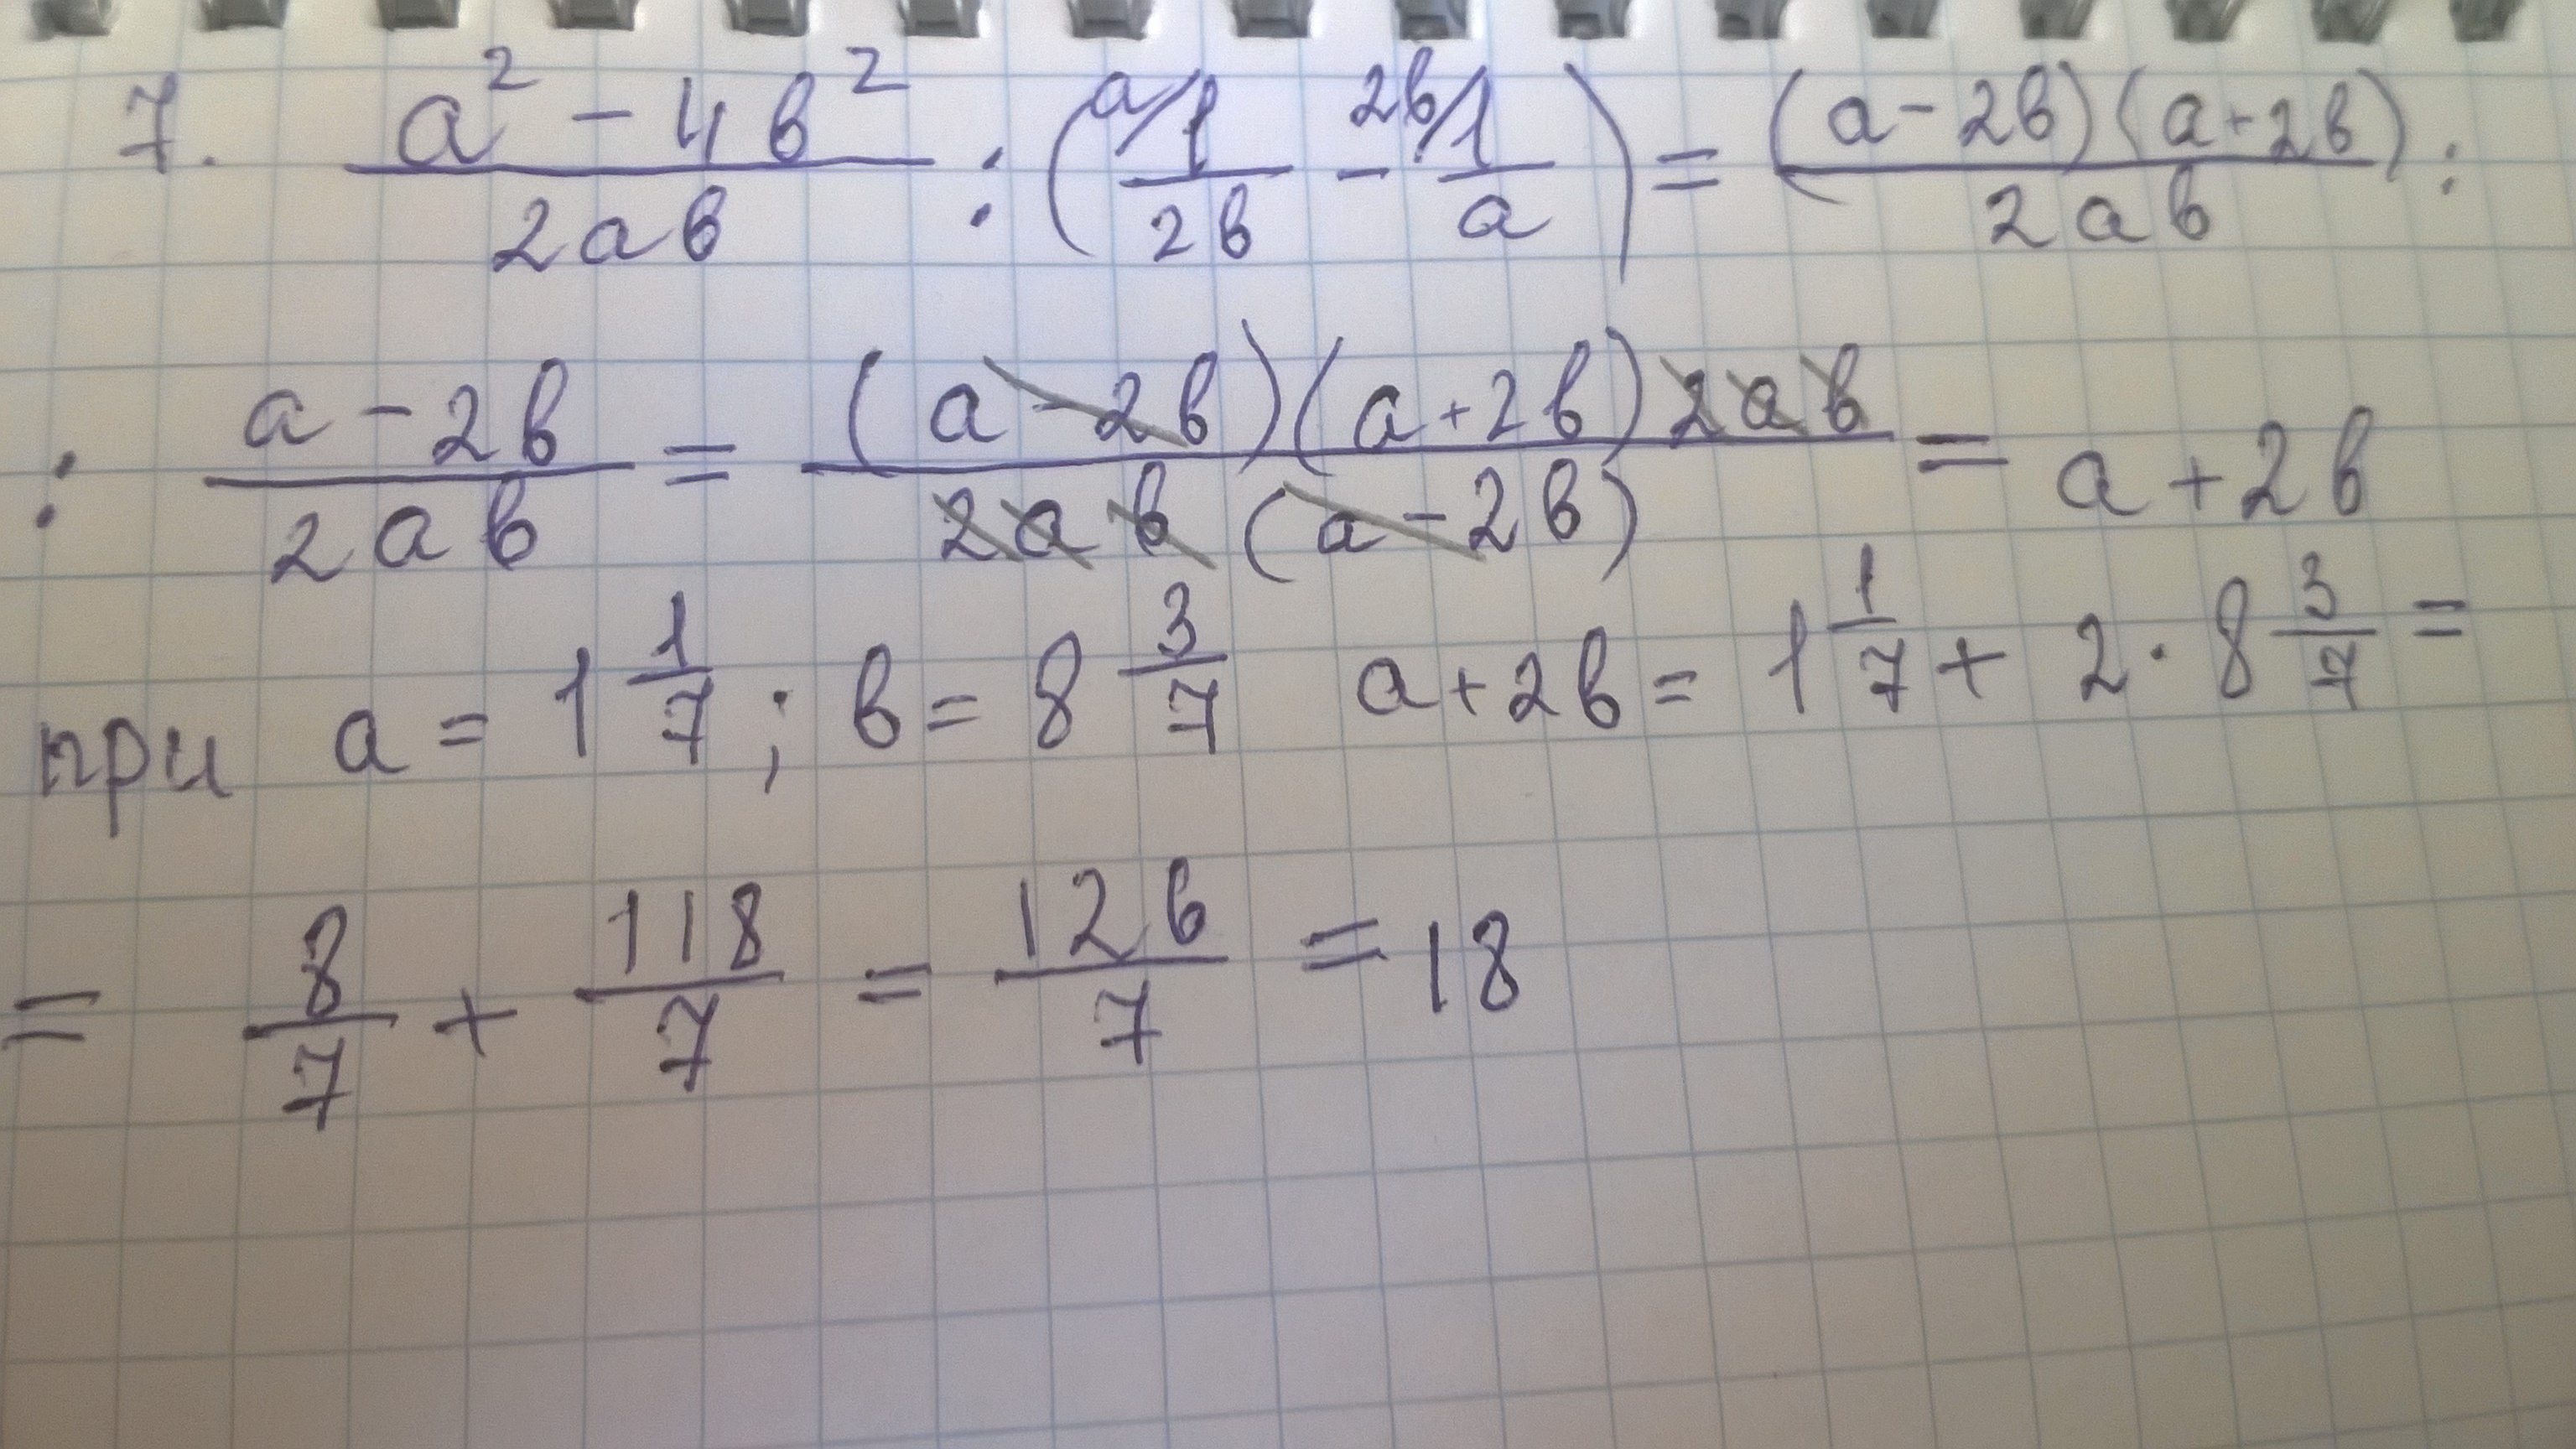 7. (a² - 4b²)/(2ab) : (ᵃ/1/(2b) - ²ᵇ/1/a) = ((a - 2b)(a + 2b))/(2ab) :
: (a - 2b)/(2ab) = ((a - 2b)(a + 2b)2ab)/(2ab(a - 2b)) = a + 2b
при a = 1 1/7 ; b = 8 3/7 a + 2b = 1 1/7 + 2 · 8 3/7 =
= 8/7 + 118/7 = 126/7 = 18